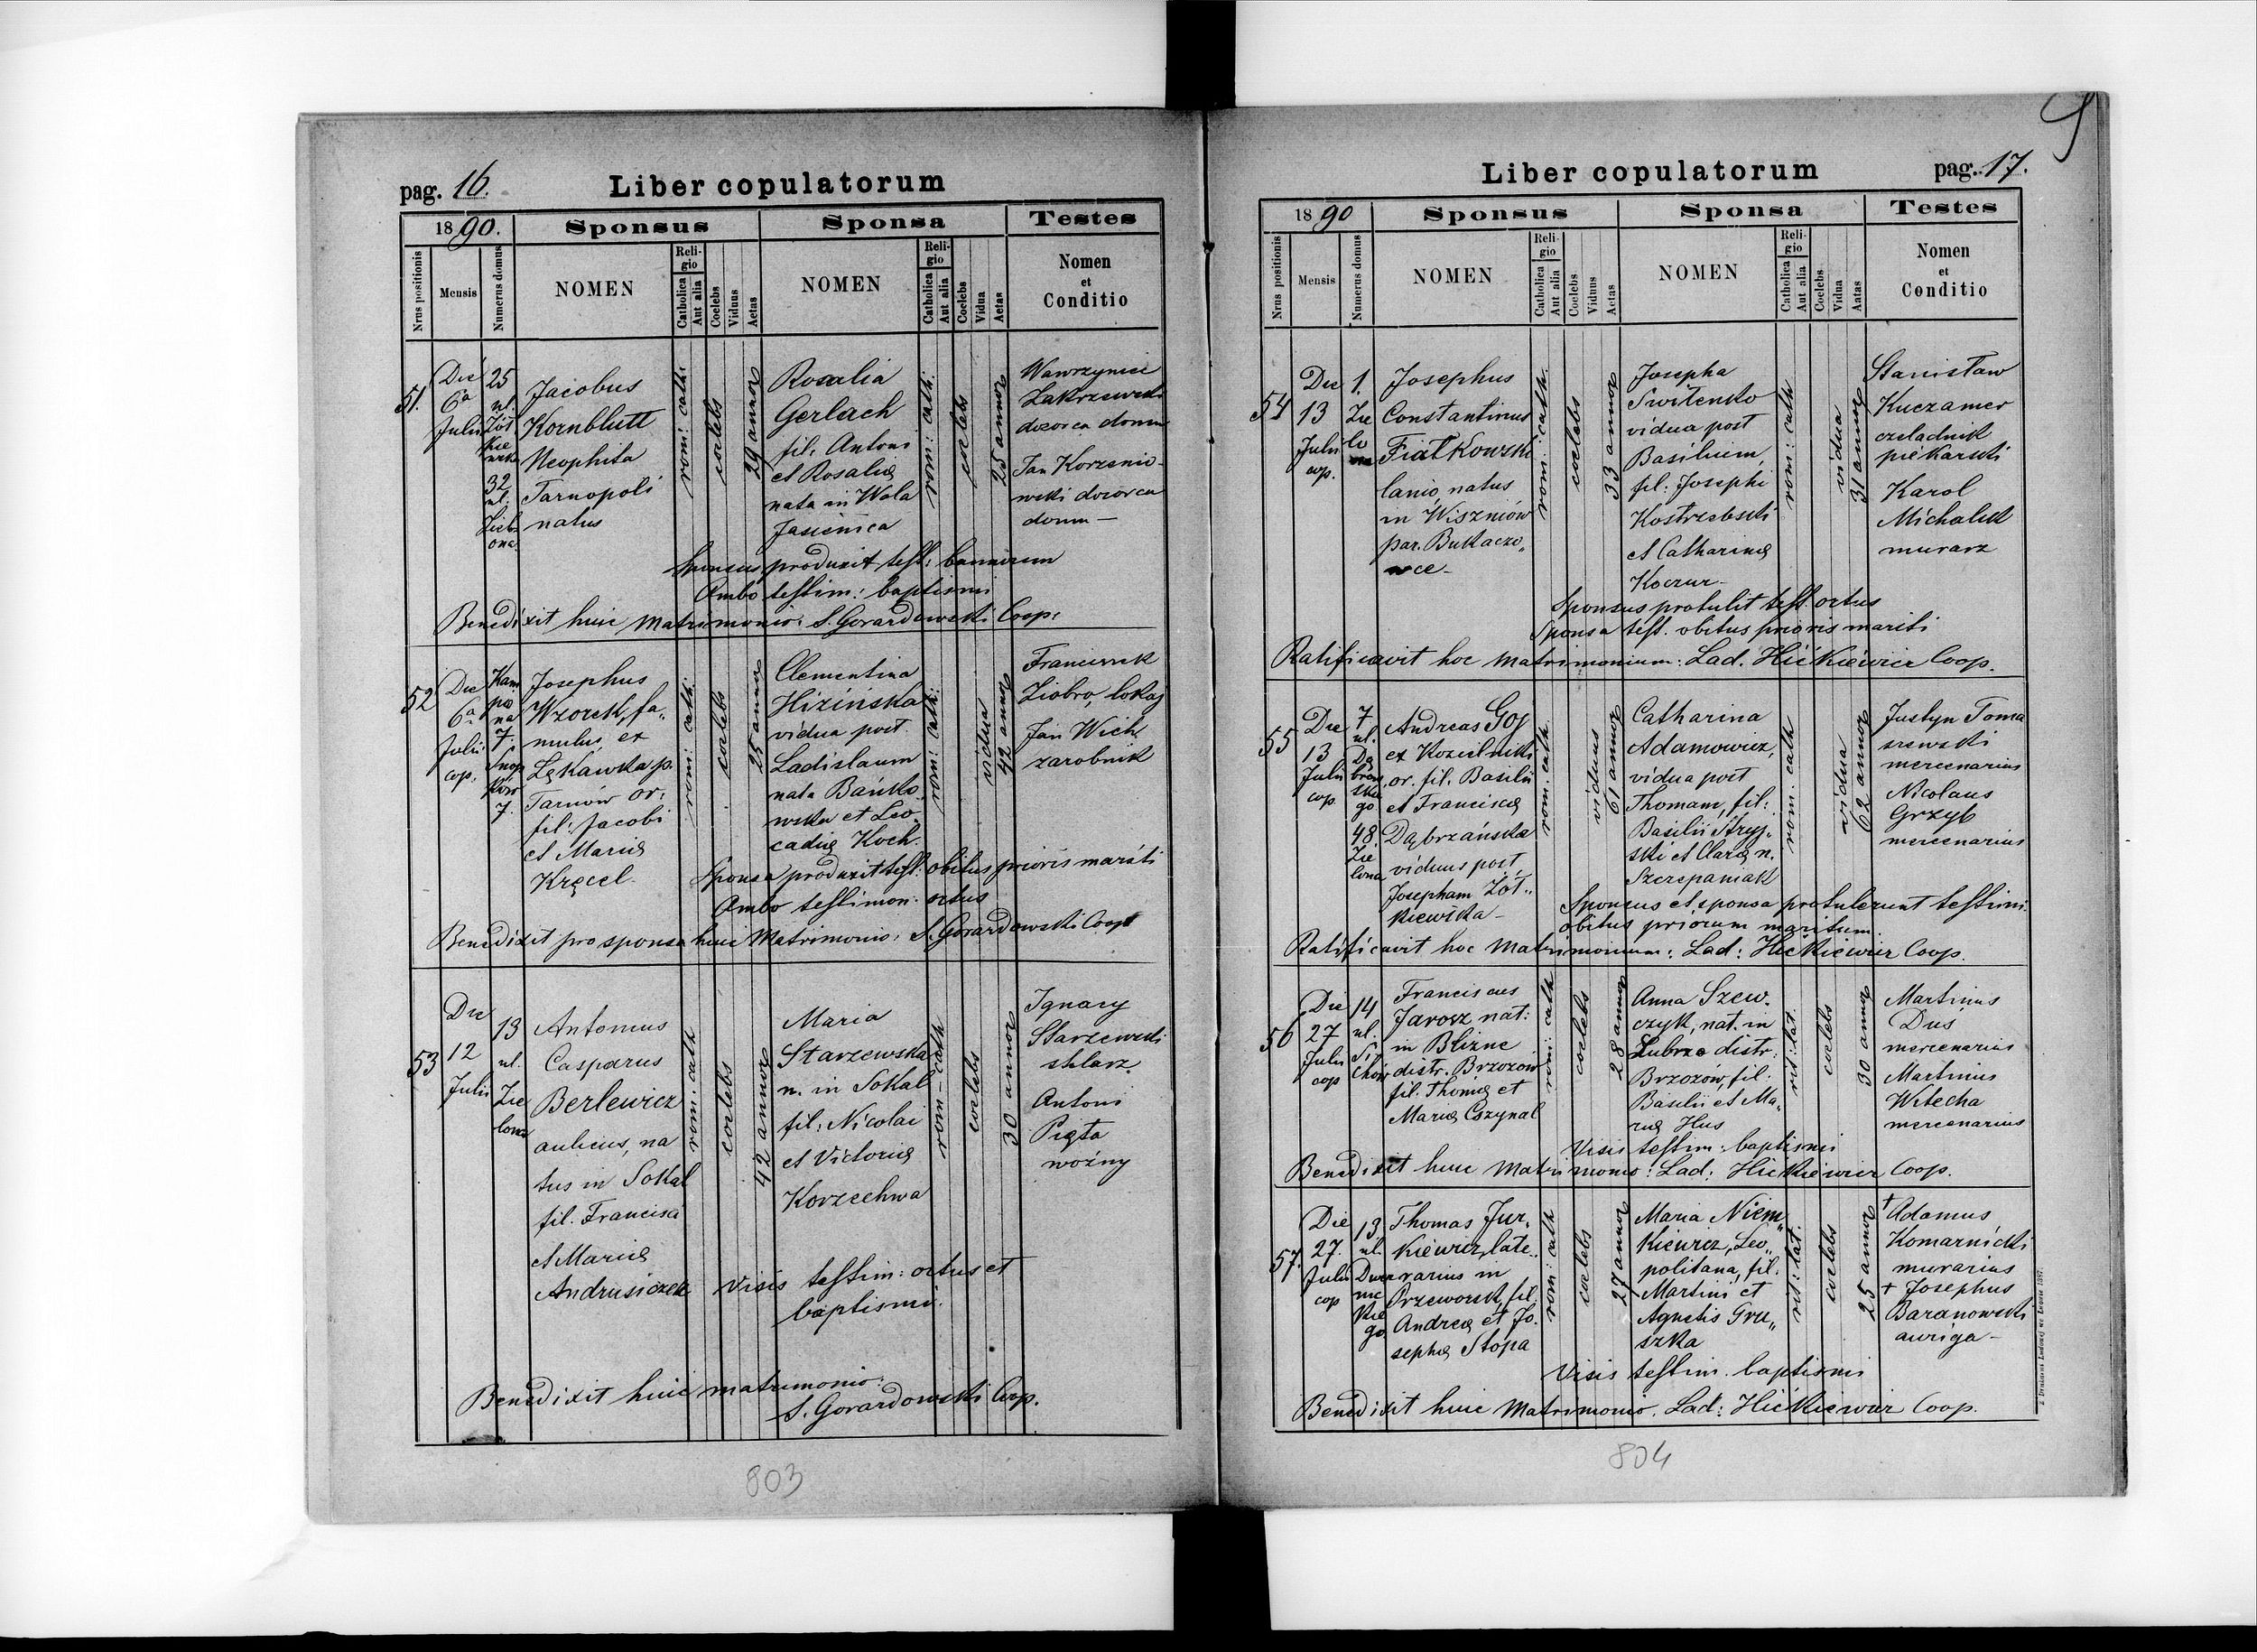 pag. 16.
Liber copulatorum
1890.
Sponsus
Sponsa
Testes
Nrus positionis
Mensis
Numerus domus
NOMEN
Religio
Catholica
Aut alia
Coelebs
Viduus
Aetas
NOMEN
Religio
Catholica
Aut alia
Coelebs
Vidua
Aetas
Nomen
et
Conditio
51.
Die
6a
Julii
25
ul.
Żół
kie
wska
32
ul.
Ziel
ona
Jacobus
Kornblutt
Neophita
Tarnopoli
natus
rom: cath:
coelebs
29 annor
Rosalia
Gerlach
fil. Antoni
et Rosaliæ
nata in Wola
Jasienica
rom: cath:
coelebs
25 annor
Wawrzyniec
Zakrzewski
dozorca domu
Jan Korzenio-
wski dozorca
domu —
Sponsus produxit test: bannorum
Ambo testim: baptismi
Benedixit huic Matrimonio: S. Gorardowski Coop:
52
Die
6a
Julii
cop.
Kam
pia
na
7.
Snop
ków
7.
Josephus
Wzorek, fa„
mulus ex
Łękawka p.
Tarnów or:
fil: Jacobi
et Mariæ
Kręcel.
rom: cath:
coelebs
25 annor
Clementina
Hizińska
vidua post
Ladislaum
nata Bańko
wska et Leo„
cadiæ Koch.
rom: cath:
vidua
42 annor
Franciszek
Ziobro, lokaj
Jan Wich
zarobnik
Sponsa produxit test: obitus prioris mariti
Ambo testimon: ortus
Benedixit pro sponsa huic Matrimonio: S. Gorardowski Coop
53
Die
12
Julii
13
ul.
Zie
lona
Antonius
Casparus
Berlewicz
aulicus, na
tus in Sokal
fil. Francisci
et Mariæ
Andrusiczek
rom: cath
coelebs
42 annor
Maria
Starzewska
n. in Sokal
fil: Nicolai
et Victoriæ
Korzechwa
rom - cath
coelebs
30 annor
Ignacy
Starzewski
sklarz
Antoni
Pięta
woźny
Visis testim: ortus et
baptismi.
Benedixit huic matrimonio:
S. Gorardowski Coop.
803
pag. 17.
Liber copulatorum
1890
Sponsus
Sponsa
Testes
Nrus positionis
Mensis
Numerus domus
NOMEN
Religio
Catholica
Aut alia
Coelebs
Viduus
Aetas
NOMEN
Religio
Catholica
Aut alia
Coelebs
Vidua
Aatas
Nomen
et
Conditio
54
Die
13
Julii
cop.
1.
Zie
lo
na
Josephus
Constantinus
Fiałkowski
lanio, natus
in Wiszniów
par. Bukaczo„
wce -
rom: cath.
coelebs
33 annor
Josepha
Switenko
vidua post
Basilium,
fil: Josephi
Kostrzebski
et Catharinæ
Koczur -
rom: cath
vidua
31 annor
Stanisław
Kuczamer
czeladnik
piekarski
Karol
Michalik
murarz
Sponsus protulit test. ortus
Sponsa test. obitus prioris mariti
Ratificavit hoc Matrimonium: Lad. Hićkiewicz Coop.
55
Die
13
Julii
cop
7
ul.
Da
brow
skie
go
48.
Zie
lona
Andreas Goj
ex Kozielniki
or. fil. Basilii
et Franciscæ
Dąbrzańska
viduus post
Josepham Żół„
kiewska -
rom. cath.
viduus
61 annor
Catharina
Adamowicz,
vidua post
Thomam, fil:
Basilii Stryj-
ski et Claræ n.
Szczepaniak
rom. cath
vidua
62 annor
Justyn Toma
szewski
mercenarius
Nicolaus
Grzyb
mercenarius
Sponsus et sponsa protulerunt testim:
obitus priorum maritum.
Ratificavit hoc Matrimonium: Lad: Hićkiewicz Coop.
56
Die
27
Julii
cop
14
ul.
Si
chow
Franciscus
Jarosz nat:
in Blizne
distr. Brzozów
fil. Thomæ et
Mariæ Cszynal
rom: cath
coelebs
28 annor
Anna Szew.
czyk, nat. in
Lubrze distr:
Brzozów, fil.
Basilii et Ma„
riæ Hus
rit: lat.
coelebs
30 annor
Martinus
Duś
mercenarius
Martinus
Witecha
mercenarius
Visis testim: baptismi
Benedixit huic Matrimonio: Lad: Hićkiewicz Coop.
57.
Die
27.
Julii
cop
13
ul.
Dwer
nic
kie
go
Thomas Jur„
kiewicz, late„
rarius in
Przeworsk, fil.
Andreæ et Jo.
sephæ Stopa
rom: cath
coelebs
27 annor
Maria Niem„
kiewicz, Leo„
politana, fil.
Martini et
Agnetis Gru„
szka
rit: lat.
coelebs
25 annor
+ Adamus
Komarnicki
murarius
+ Josephus
Baranowski
auriga -
Visis testim. baptismi
Benedixit huic Matrimonio. Lad: Hićkiewicz Coop.
804